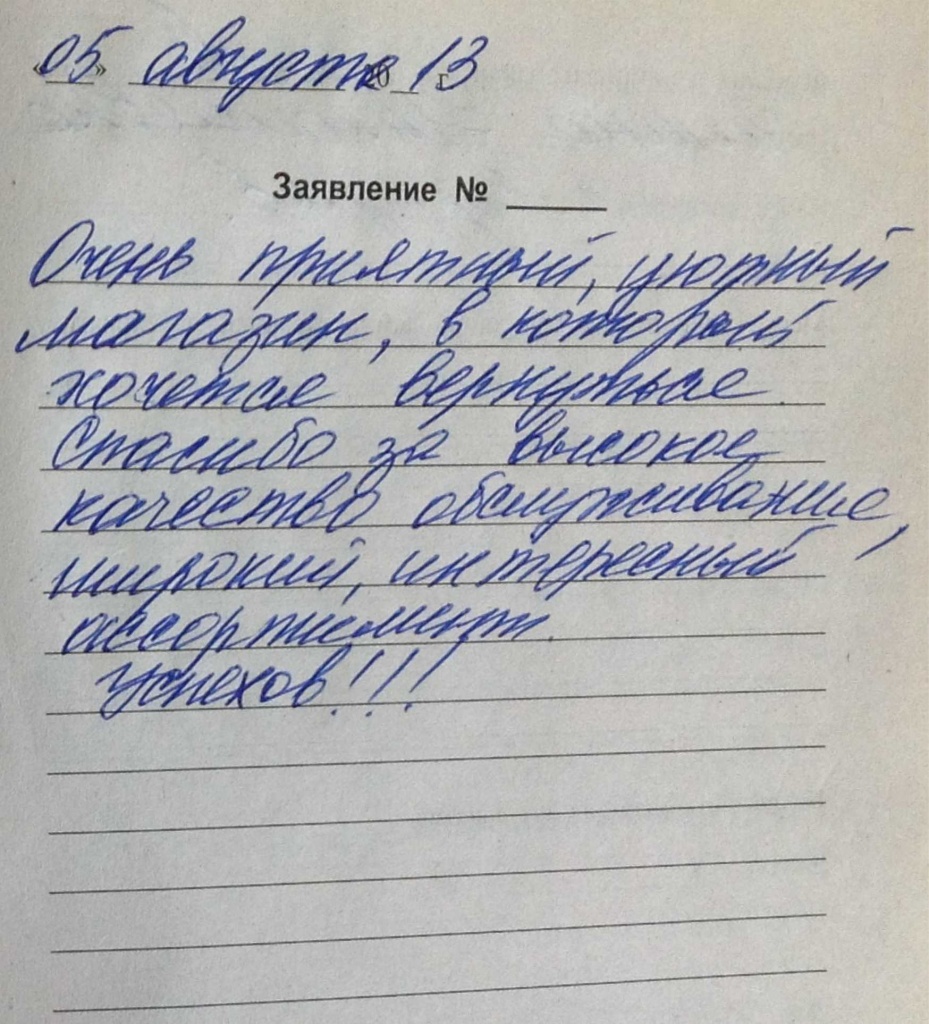 «05» августа 2013 г
Заявление № ____
Очень приятный, уютный
магазин, в который
хочется вернуться.
Спасибо за высокое
качество обслуживание,
широкий, интересный
ассортимент.
Успехов!!!